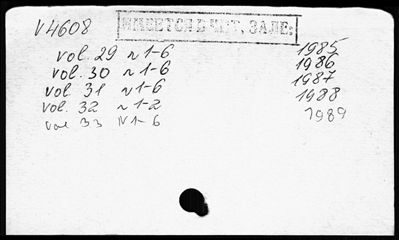 V4608
ИМЕЕТСЯ В ЧИТ. ЗАЛЕ:
vol. 29 N 1-6 1985
vol. 30 N 1-6 1986
vol. 31 N 1-6 1987
vol. 32 N 1-2 1988
vol 33 N 1-6 1989